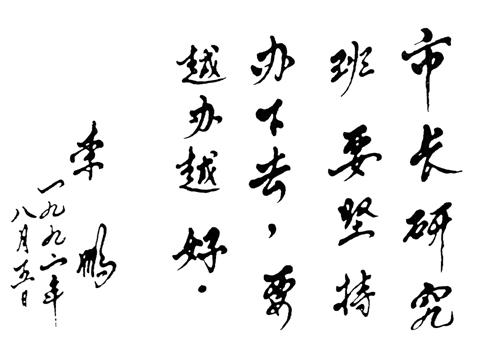 市长研究
班要坚持
办下去，要
越办越好.
李鹏
一九九二年
八月五日